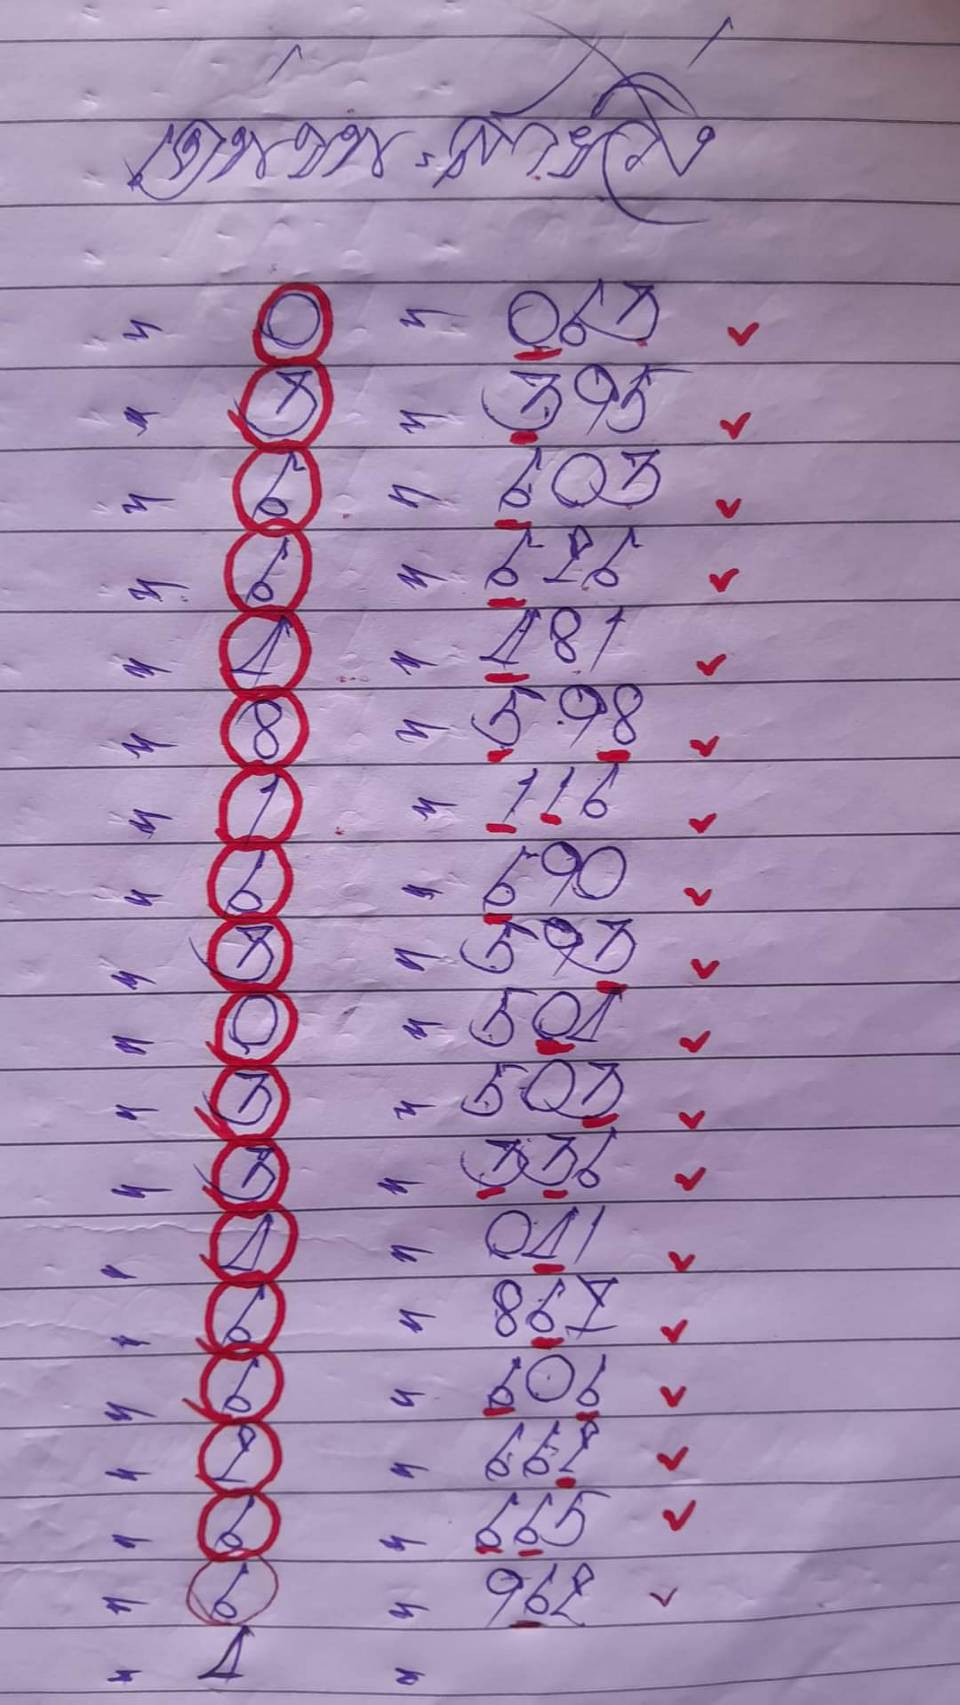 " 0 " 063
" 3 " 395
" 6 " 603
" 6 " 626
" 4 " 481
" 8 " 598
" 1 " 116
" 6 " 690
" 3 " 593
" 0 " 504
" 3 " 503
" 3 " 336
" 4 " 041
" 6 " 867
" 6 " 606
" 2 " 662
" 6 " 665
" 6 " 962
" 4 "